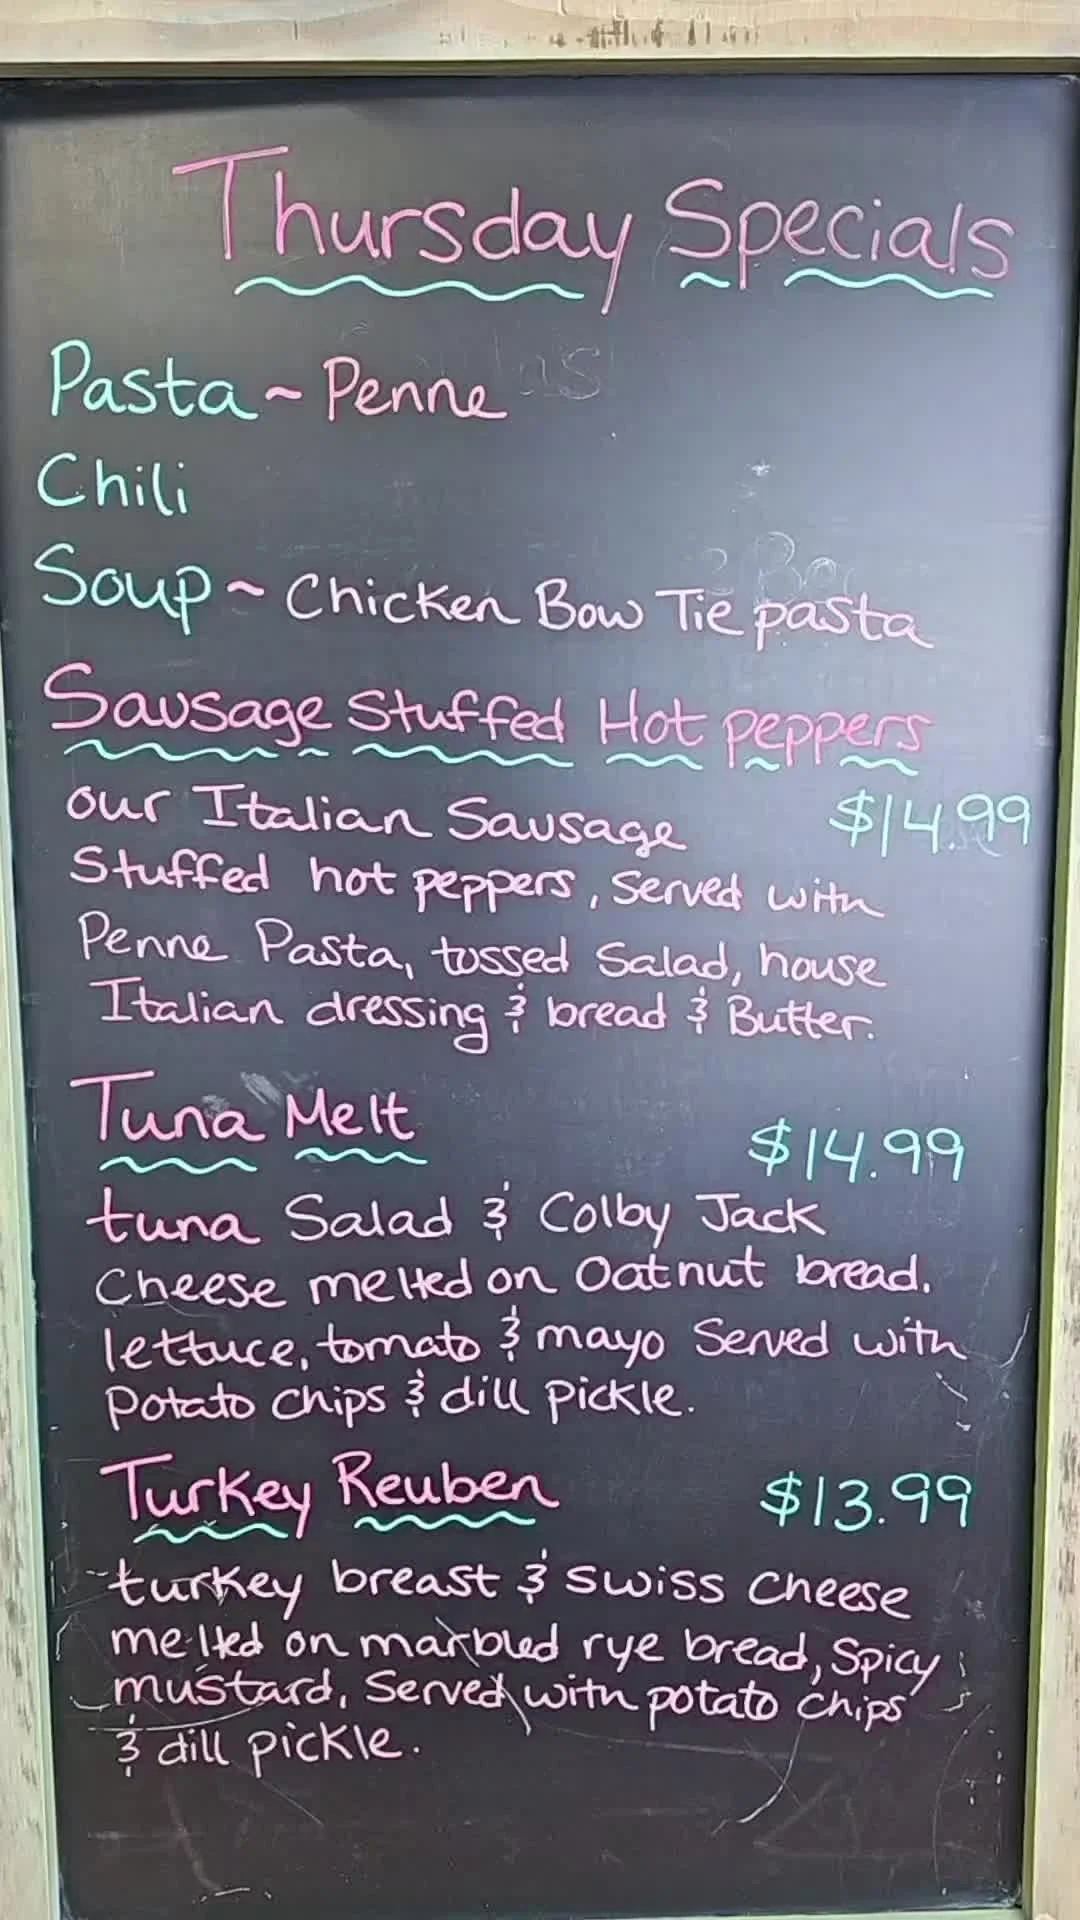 Thursday Specials
Pasta ~ Penne
Chili
Soup ~ Chicken Bow Tie pasta
Sausage Stuffed Hot peppers
our Italian Sausage $14.99
Stuffed hot peppers, Served with
Penne Pasta, tossed Salad, house
Italian dressing & bread & Butter.
Tuna Melt $14.99
tuna Salad & Colby Jack
Cheese melted on Oatnut bread.
lettuce, tomato & mayo Served with
Potato Chips & dill pickle.
Turkey Reuben $13.99
turkey breast & swiss Cheese
melted on marbled rye bread, Spicy
mustard, Served with potato chips
& dill pickle.